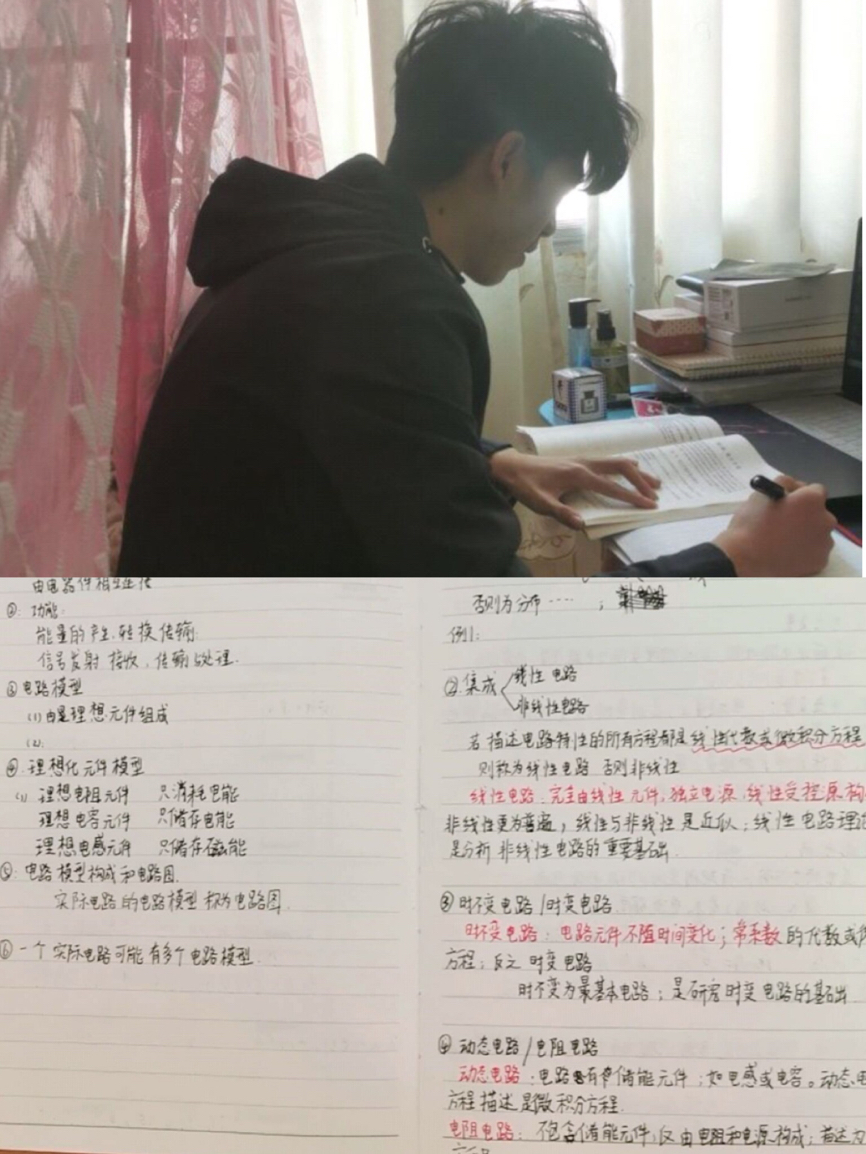 由电器件相互连接
②. 功能:
能量的产生.转换.传输.
信号发射.接收,传输与处理.
③ 电路模型
(1) 由是理想元件组成
(2).
④. 理想化元件模型
(1) 理想电阻元件 只消耗电能
理想电容元件 只储存电能
理想电感元件 只储存磁能
⑤. 电路模型构成和电路图.
实际电路的电路模型称为电路图.
⑥ 一个实际电路可能有多个电路模型.
否则为分布 ····· ;
例1:
② 集成 线性电路
非线性电路
若描述电路特性的所有方程都是线性代数或微积分方程
则称为线性电路 否则非线性
线性电路:完全由线性元件.独立电源.线性受控源构
非线性更为普遍,线性与非线性是近似;线性电路理论
是分析非线性电路的重要基础.
③ 时不变电路/时变电路
时不变电路:电路元件不随时间变化;常系数的代数或
方程;反之 时变电路
时不变为最基本电路;是研究时变电路的基础
④ 动态电路/电阻电路
动态电路:电路有储能元件;如电感或电容。动态电
方程描述是微积分方程.
电阻电路:不包含储能元件,仅由电阻和电源构成;描述为